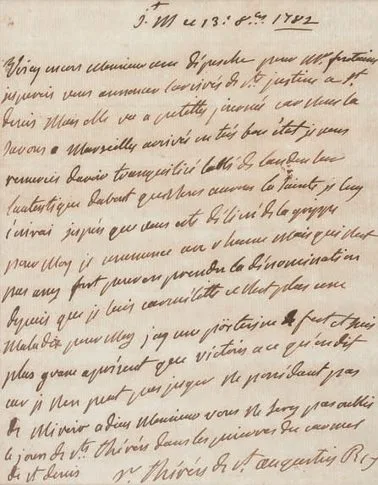 J. M. ce 13. 8bre 1782
Voicy encore Monsieur une dépesche pour Mr. fontaine
je pouvois vous annoncer l'arrivée de St. justine a St.
denis Mais elle va a petittes journée car nous la
savons a Marseilles arrivée en très bon état je vous
remercie d'avoir tranquilisé l'abbé de
fantastique dabort que Mere aura la Sainte je luy
écrirai jespère que vous ete délivré de la grippe
pour Moy je commence un rhume Mais qui n'est
pas assez fort pour en prendre la dénomination
depuis que je suis carmélitte ce n'est plus une
Maladie pour Moy jay une poitrine de fert et suis
plus grasse apresent que victoire a ce qu'on dit
car je n'en peut pas juger ne possédant pas
de Miroir adieu Monsieur vous ne serez pas oublié
le jour de Ste. thérèse dans les prieres des carmes
de St. denis
Sr. thérèse de St. augustin R.